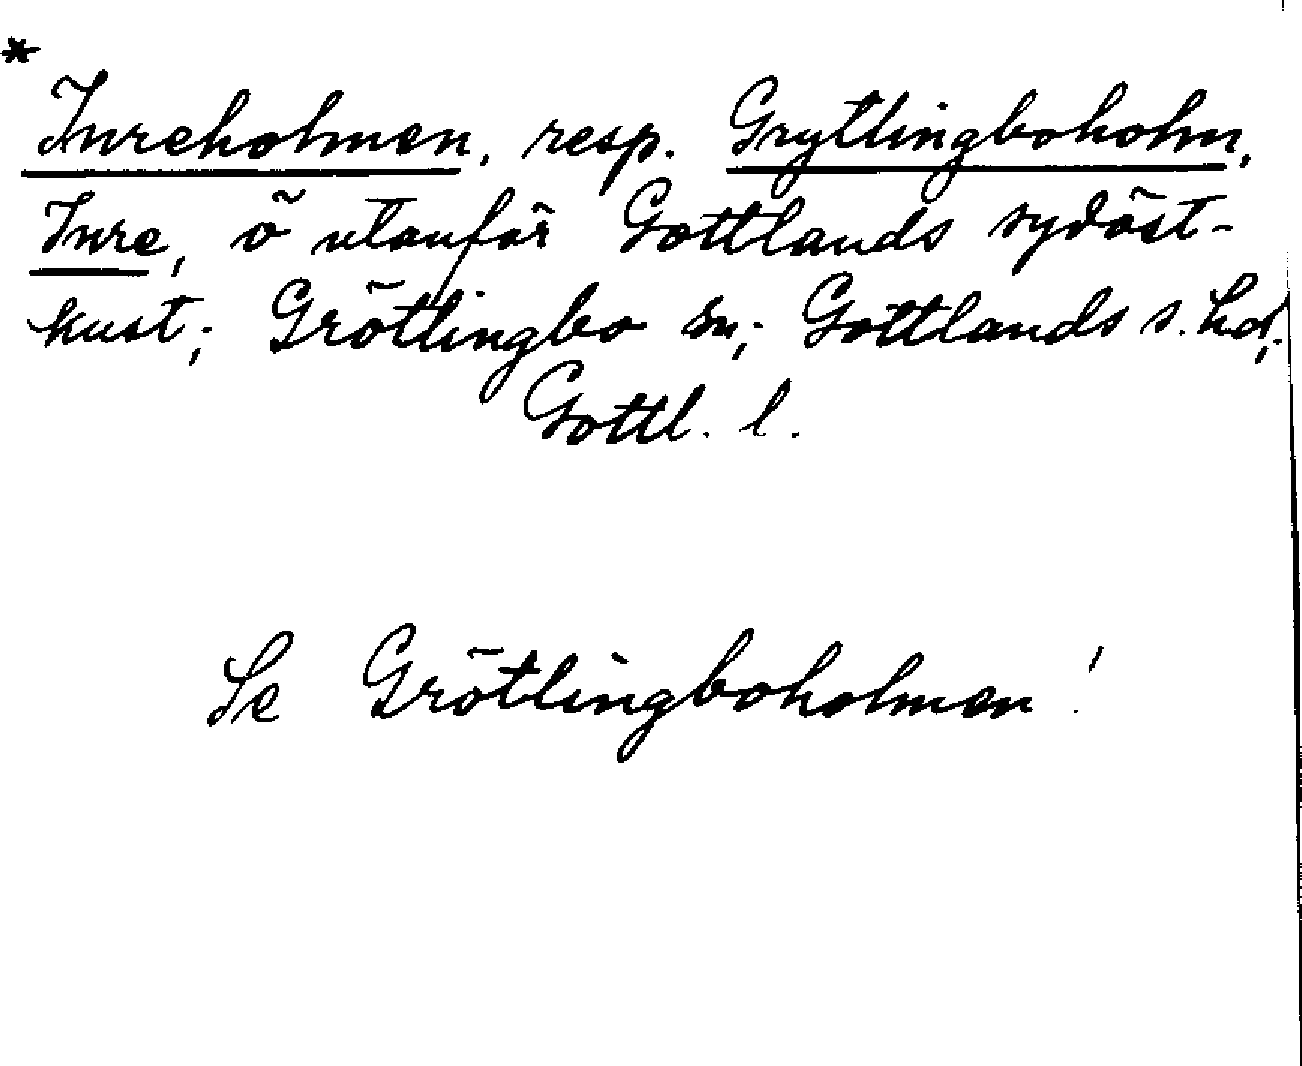 *
Inreholmen, resp. Grytlingboholm,
Inre, ö utanför Gottlands sydöst-
kust; Grötlingbo sn; Gottlands s. hd;
Gottl. l.
Se Grötlingboholmen!